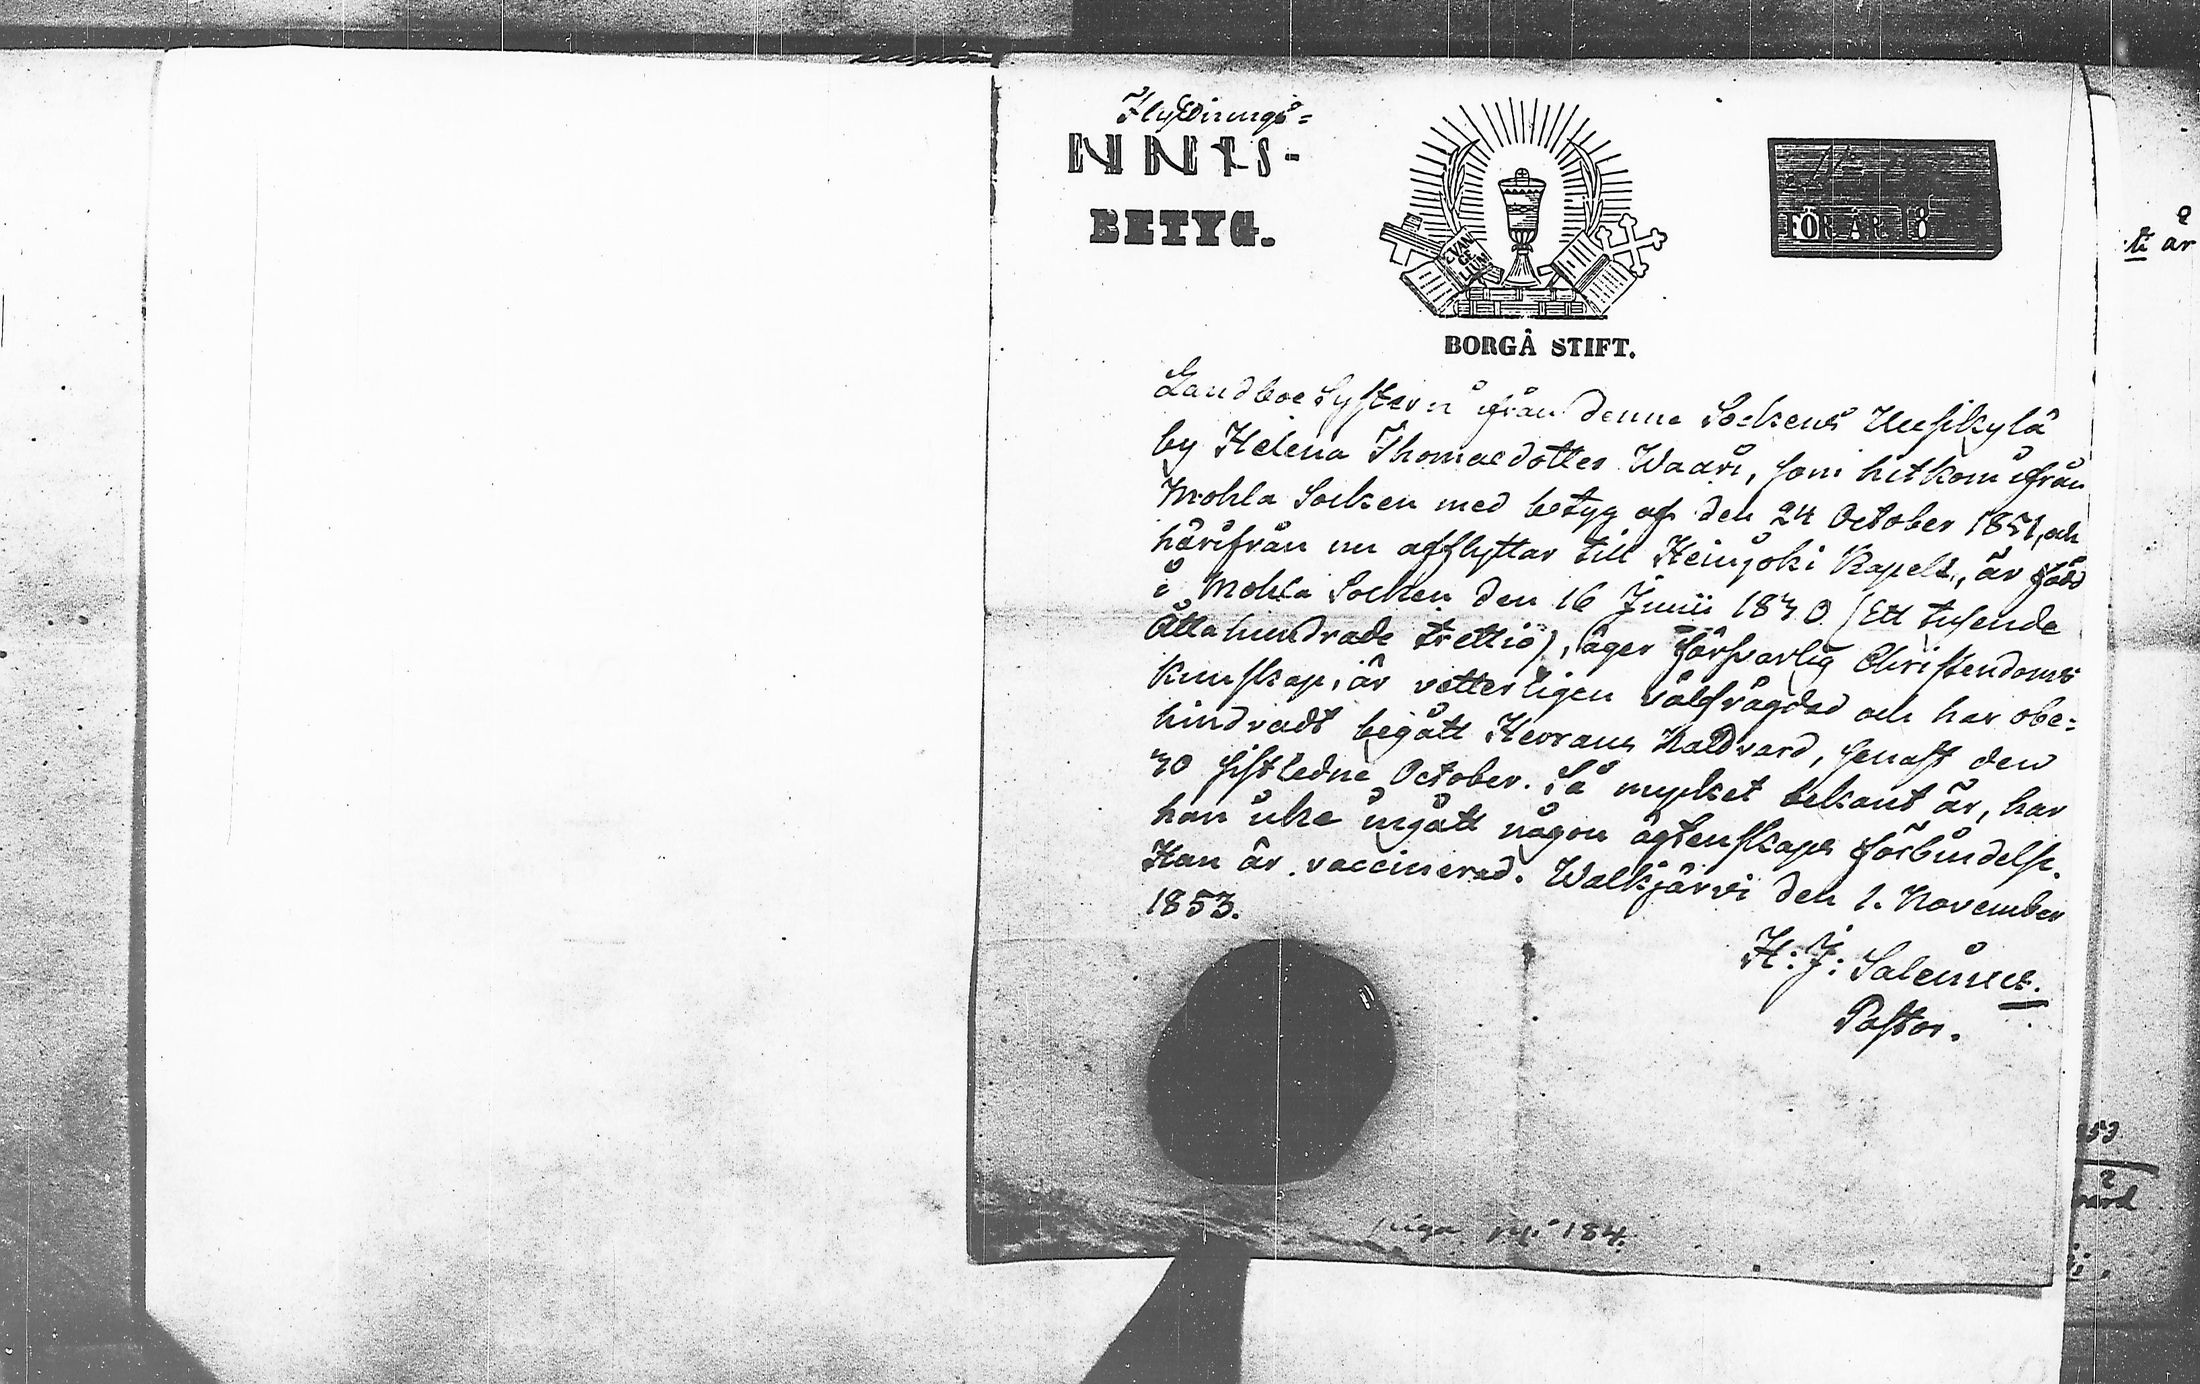 Flyttnings=
BETYG.
EVAN
GE
LIUM
FÖR ÅR 18
BORGÅ STIFT.
Landboe Systern ifrån denne Sockens Uusikylä
by Helena Thomaedotter Waari, som hitkom ifrån
Mohla Socken med betyg af den 24 October 1851, och
härifrån nu afflyttar till Heinjoki Kapell, är född
i Mohla Socken den 16 Junii 1830 (Ett tusende
Åttahundrade trettio), äger försvarlig Christendoms
kunskap, är vetterligen välfrägdad och har obe=
hindradt begått Herrans Nattvard, senast den
30 sistledne October. Så mycket bekant är, har
hon icke ingått någon ägtenskaps förbindelse.
Hon är vaccinerad. Walkjärvi den 1. November
1853.
H: J: Salenius.
Pastor.
184.